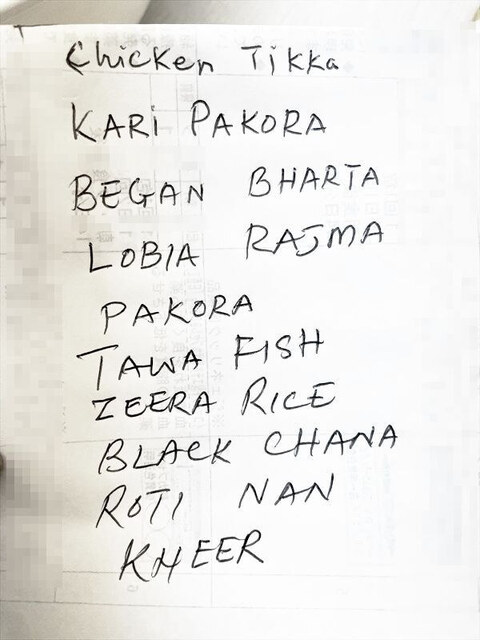 Chicken Tikka
KARI PAKORA
BEGAN BHARTA
LOBIA RAJMA
PAKORA
TAWA FISH
ZEERA RICE
BLACK CHANA
ROTI NAN
KHEER